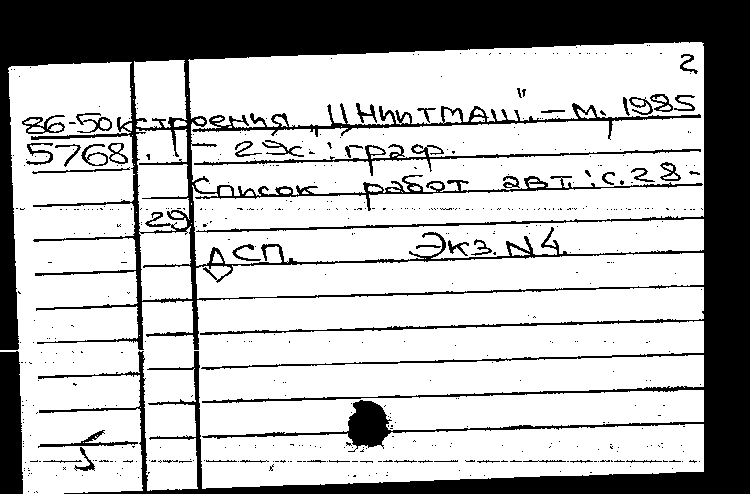 2
86-50кстроения „ЦНИИТМАШ". – М., 1985
5768. – 29с. : граф.
Список работ авт.: с. 28-
29
ДСП. Экз. N 4.